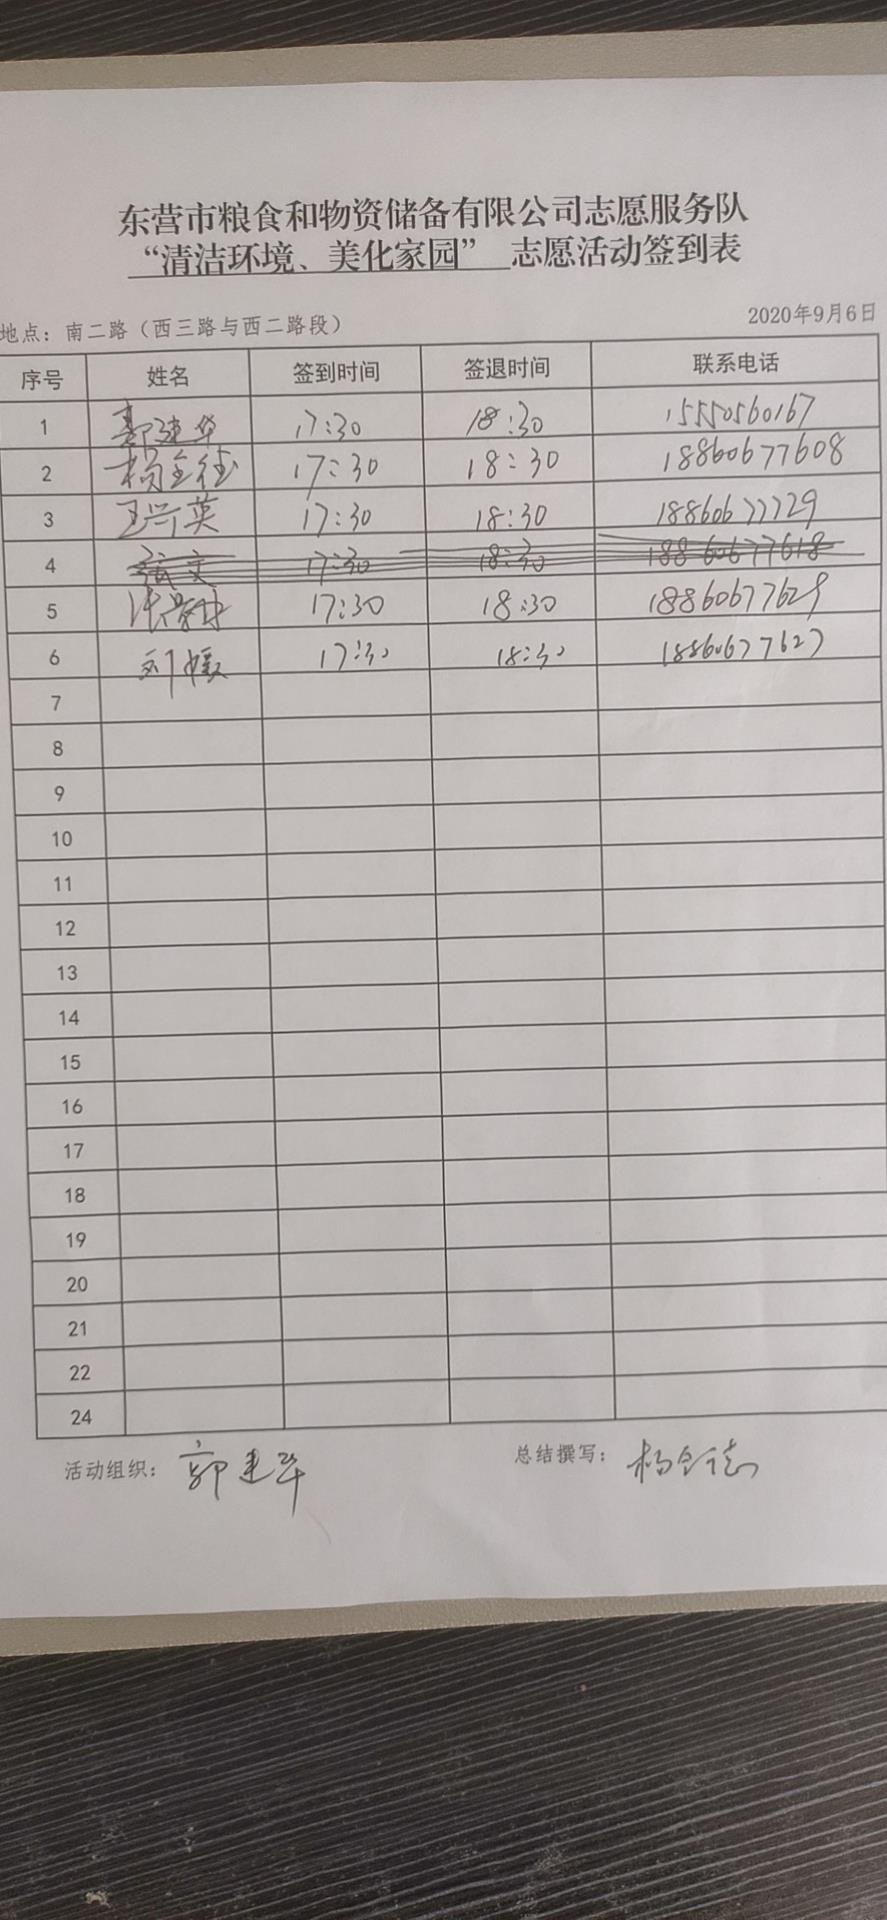 东营市粮食和物资储备有限公司志愿服务队
“清洁环境、美化家园” 志愿活动签到表
地点：南二路（西三路与西二路段） 2020年9月6日
序号 姓名 签到时间 签退时间 联系电话
1 郭建华 17:30 18:30 15550560167
2 杨金德 17:30 18:30 18860677608
3 王兴英 17:30 18:30 18860677729
4 17:30 18:30 18860677618
5 17:30 18:30 18860677629
6 17:30 18:30 18860677627
7
8
9
10
11
12
13
14
15
16
17
18
19
20
21
22
24
活动组织：郭建华 总结撰写：